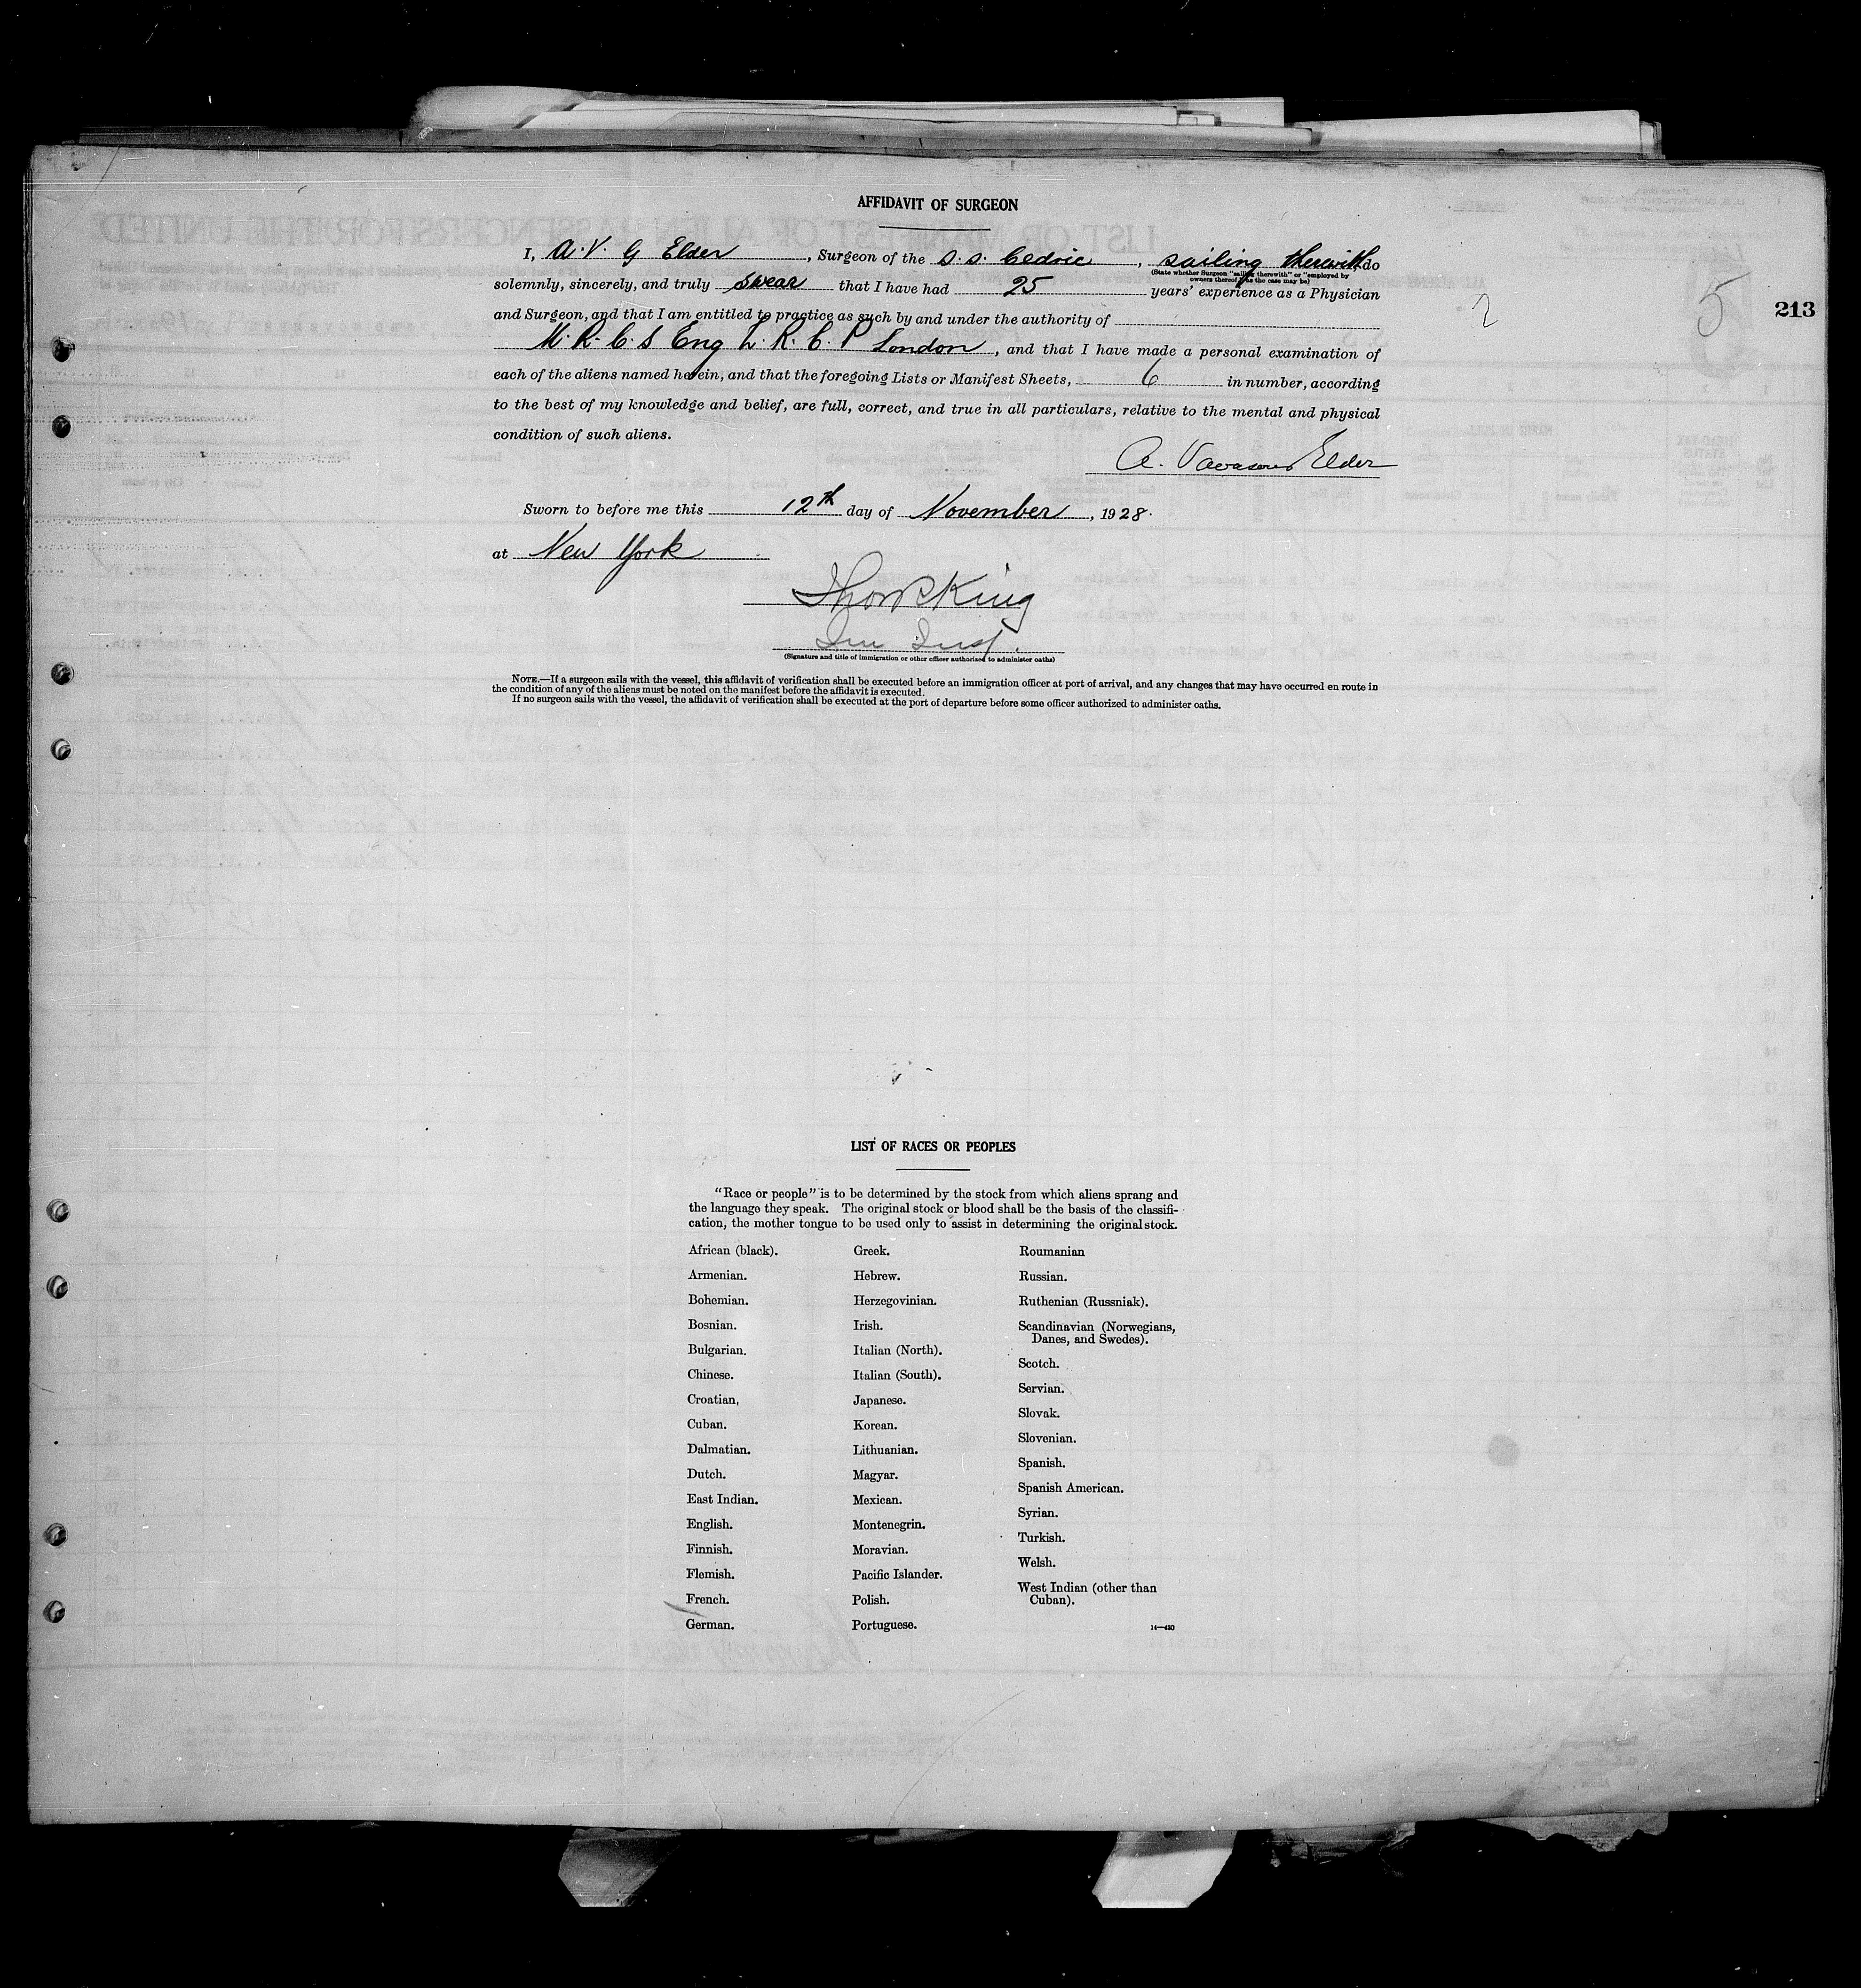 AFFIDAVIT OF SURGEON
213
5
2
I, A. V. G Elder, Surgeon of the S. S. Cedric, sailing therewith do
(State whether Surgeon "sailing therewith" or "employed by
owners thereof," as the case may be)
solemnly, sincerely, and truly swear that I have had 25 years' experience as a Physician
and Surgeon, and that I am entitled to practice as such by and under the authority of
M. R. C. S Eng L. R. C. P London, and that I have made a personal examination of
each of the aliens named herein, and that the foregoing Lists or Manifest Sheets, 6 in number, according
to the best of my knowledge and belief, are full, correct, and true in all particulars, relative to the mental and physical
condition of such aliens.
A. Vavasour Elder
Sworn to before me this 12th day of November, 1928.
at New York
King
Im Insp.
(Signature and title of immigration or other officer authorized to administer oaths)
NOTE.—If a surgeon sails with the vessel, this affidavit of verification shall be executed before an immigration officer at port of arrival, and any changes that may have occurred en route in
the condition of any of the aliens must be noted on the manifest before the affidavit is executed.
If no surgeon sails with the vessel, the affidavit of verification shall be executed at the port of departure before some officer authorized to administer oaths.
LIST OF RACES OR PEOPLES
"Race or people" is to be determined by the stock from which aliens sprang and
the language they speak. The original stock or blood shall be the basis of the classifi-
cation, the mother tongue to be used only to assist in determining the original stock.
African (black).
Armenian.
Bohemian.
Bosnian.
Bulgarian.
Chinese.
Croatian,
Cuban.
Dalmatian.
Dutch.
East Indian.
English.
Finnish.
Flemish.
French.
German.
Greek.
Hebrew.
Herzegovinian.
Irish.
Italian (North).
Italian (South).
Japanese.
Korean.
Lithuanian.
Magyar.
Mexican.
Montenegrin.
Moravian.
Pacific Islander.
Polish.
Portuguese.
Roumanian
Russian.
Ruthenian (Russniak).
Scandinavian (Norwegians,
Danes, and Swedes).
Scotch.
Servian.
Slovak.
Slovenian.
Spanish.
Spanish American.
Syrian.
Turkish.
Welsh.
West Indian (other than
Cuban).
14—430